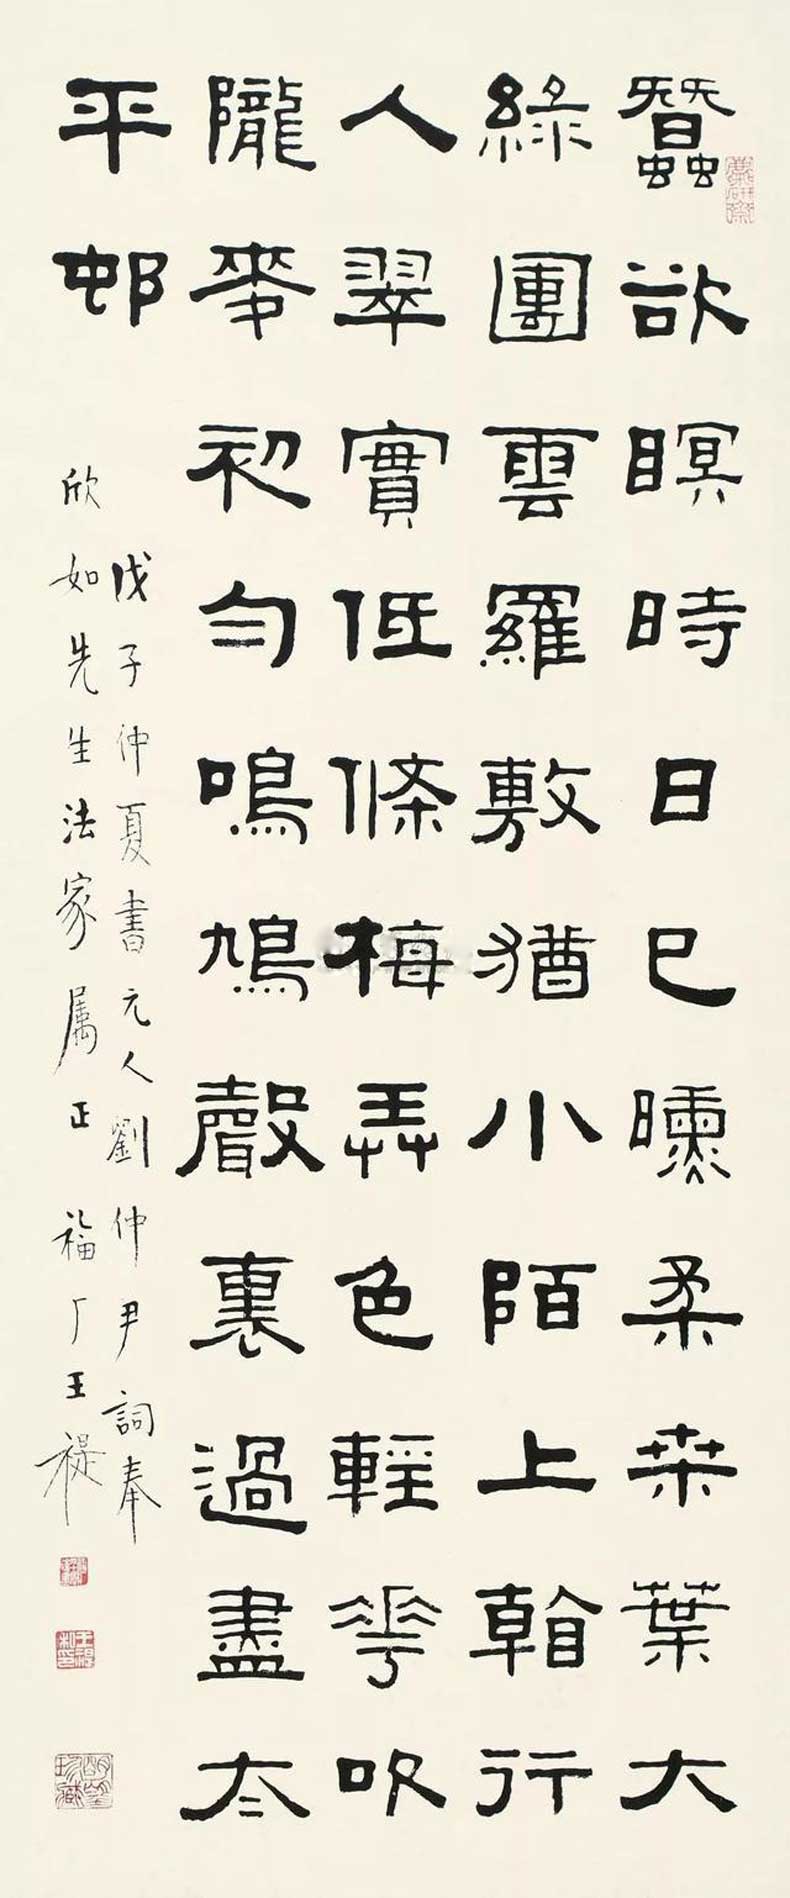 麋研齋
蠶欲瞑時日已曛柔桒葉大
綠團雲羅敷猶小陌上看行
人翠實低條梅弄色輕花吹
隴麥初勻鳴鳩聲裏過盡太
平邨
戊子仲夏書元人劉仲尹詞奉
欣如先生法家属正 福厂王禔
王禔私印